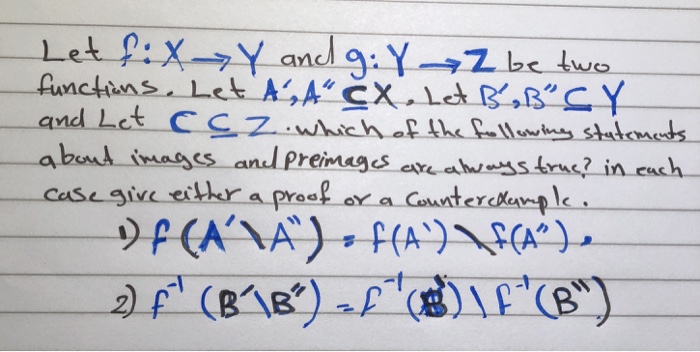 Let f: X → Y and g: Y → Z be two
functions. Let A', A" ⊆ X. Let B', B" ⊆ Y
and Let C ⊆ Z. which of the following statements
about images and preimages are always true? in each
case give either a proof or a Counterexample.
1) f (A' \ A") = f(A') \ f(A").
2) f⁻¹ (B' \ B") = f⁻¹(B') \ f⁻¹(B")